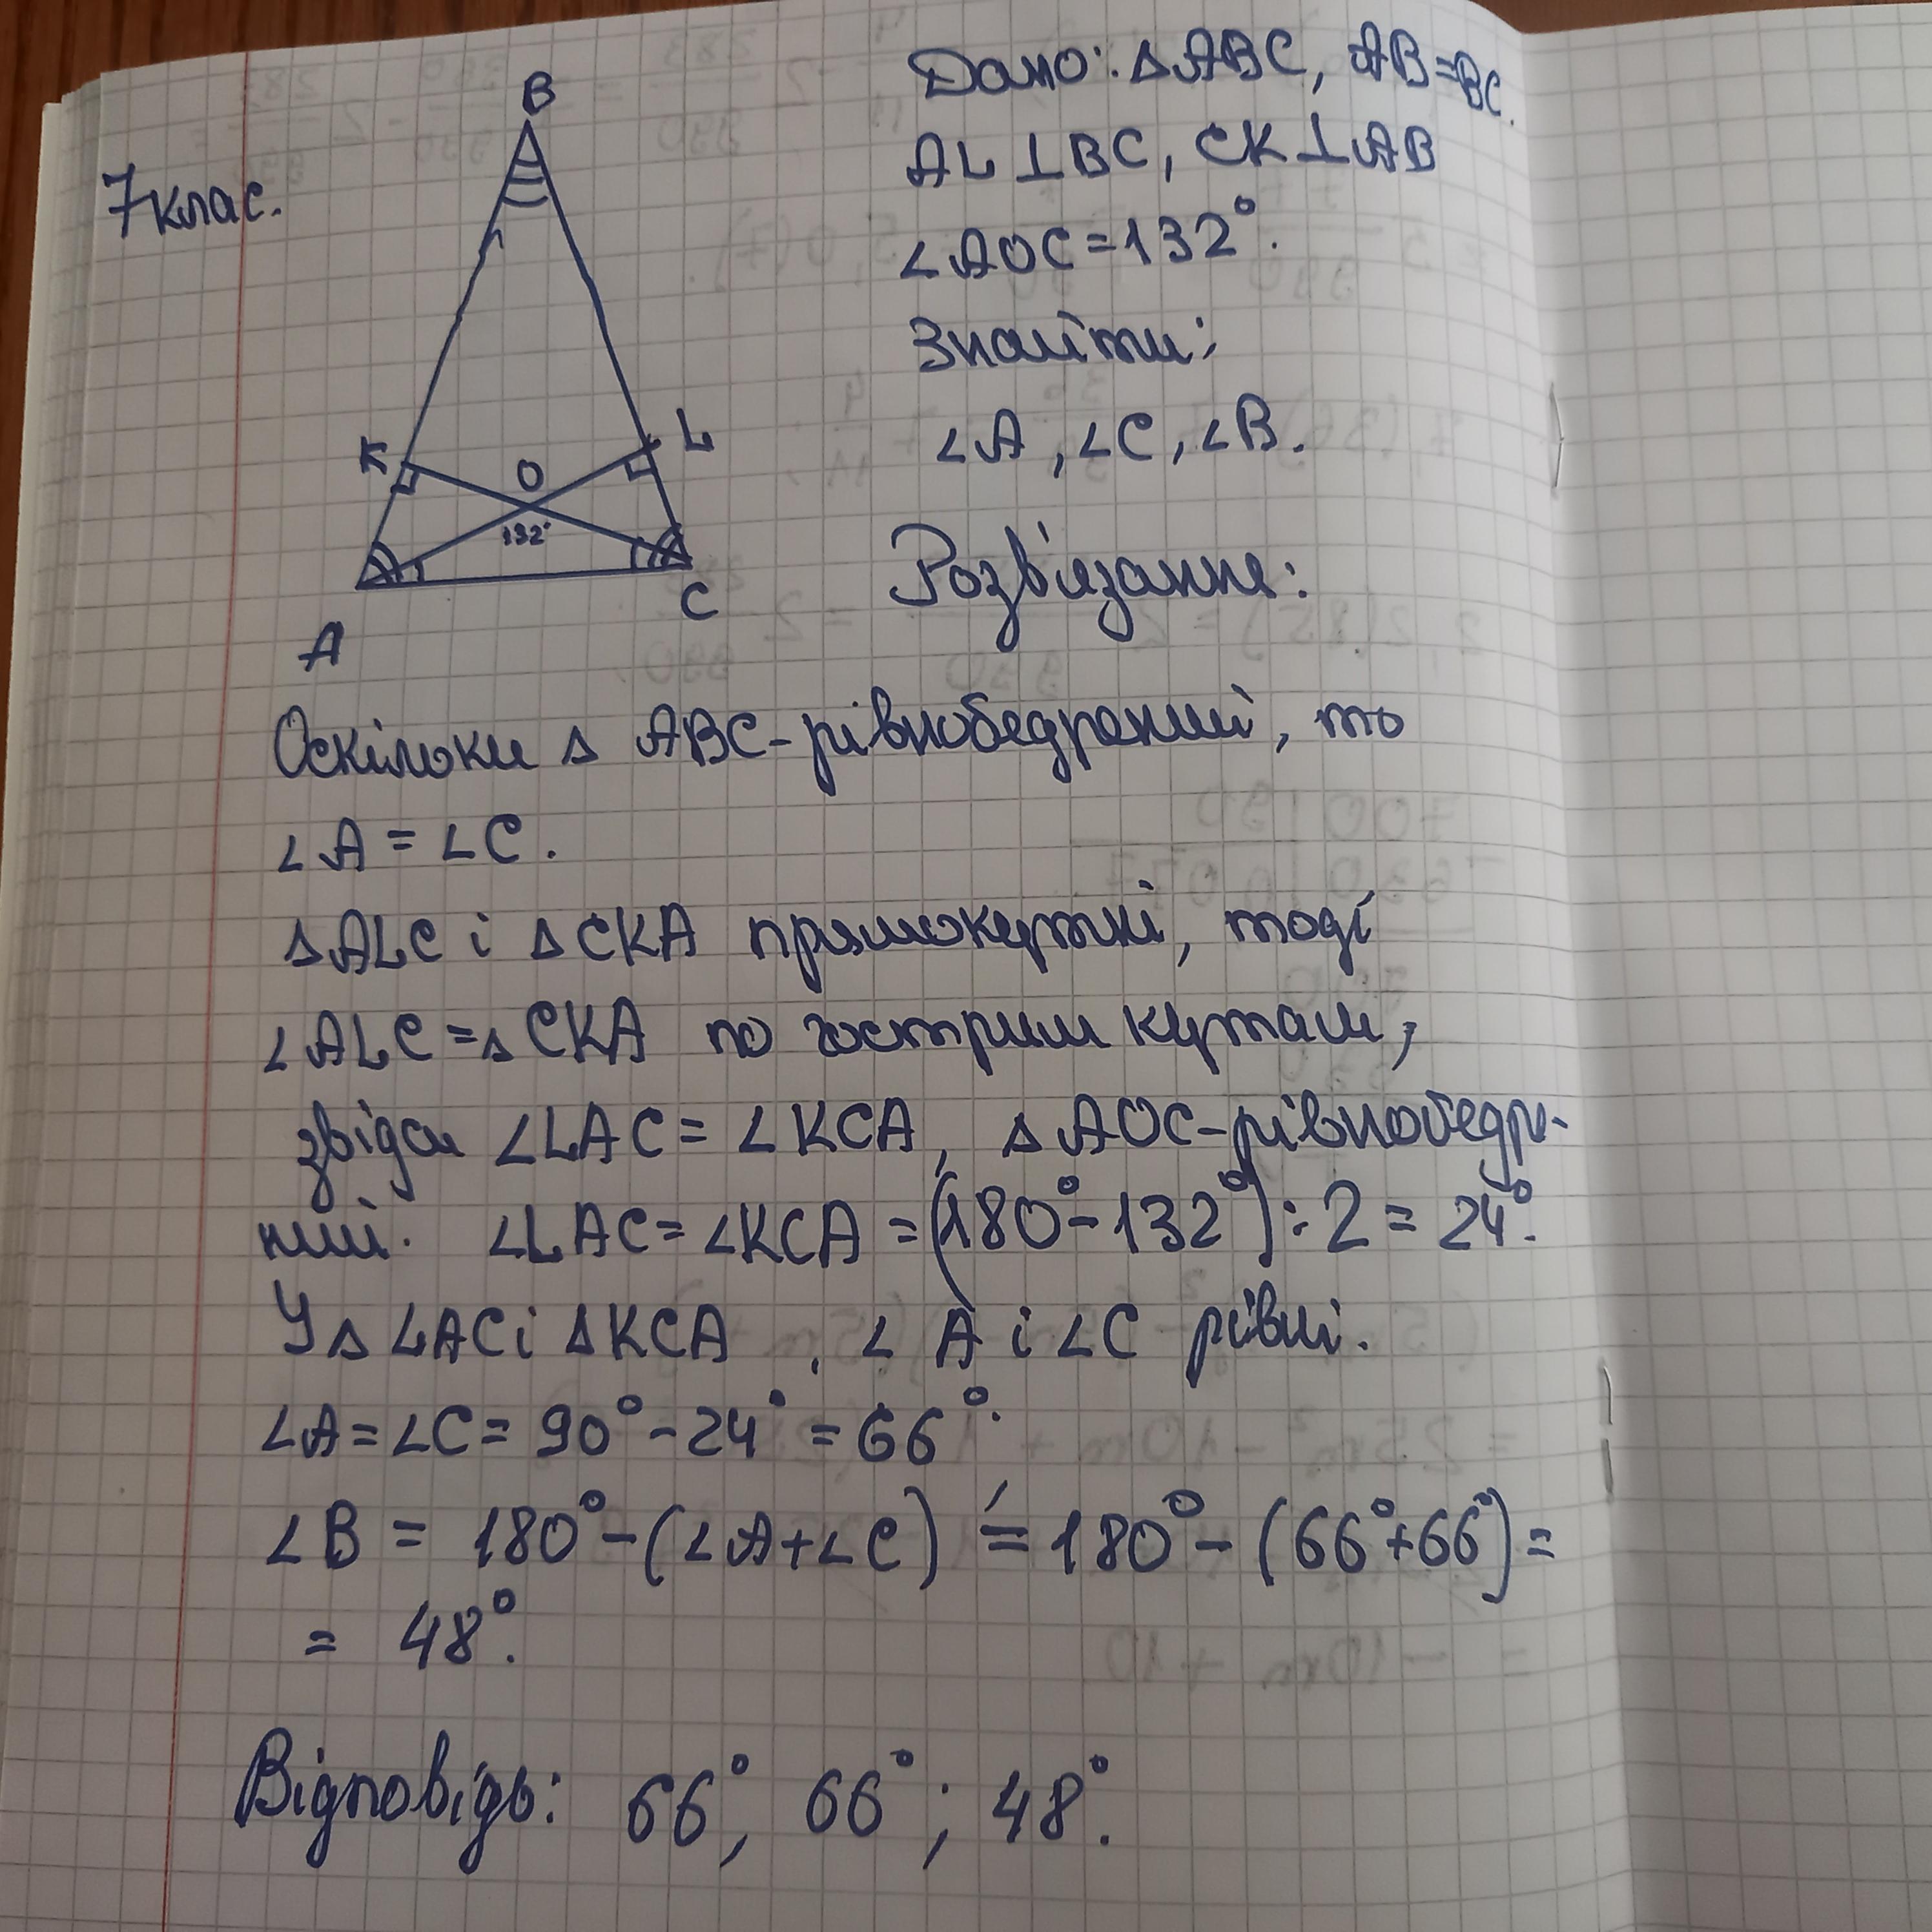 7 клас.
B
K
L
O
132°
A
C
Дано: ΔABC, AB=BC.
AL⊥BC, CK⊥AB
∠AOC=132°.
Знайти:
∠A, ∠C, ∠B.
Розв'язання:
Оскільки Δ ABC-рівнобедрений, то
∠A = ∠C.
ΔALC і ΔCKA прямокутні, тоді
∠ALC = Δ CKA по гострим кутам,
звідси ∠LAC = ∠KCA, Δ AOC-рівнобедре-
ний. ∠LAC = ∠KCA = (180°-132°):2 = 24°.
У Δ LAC і ΔKCA , ∠ A і ∠C рівні.
∠A = ∠C = 90° - 24° = 66°.
∠B = 180° - (∠A+∠C) = 180° - (66°+66°) =
= 48°.
Відповідь: 66°, 66°; 48°.